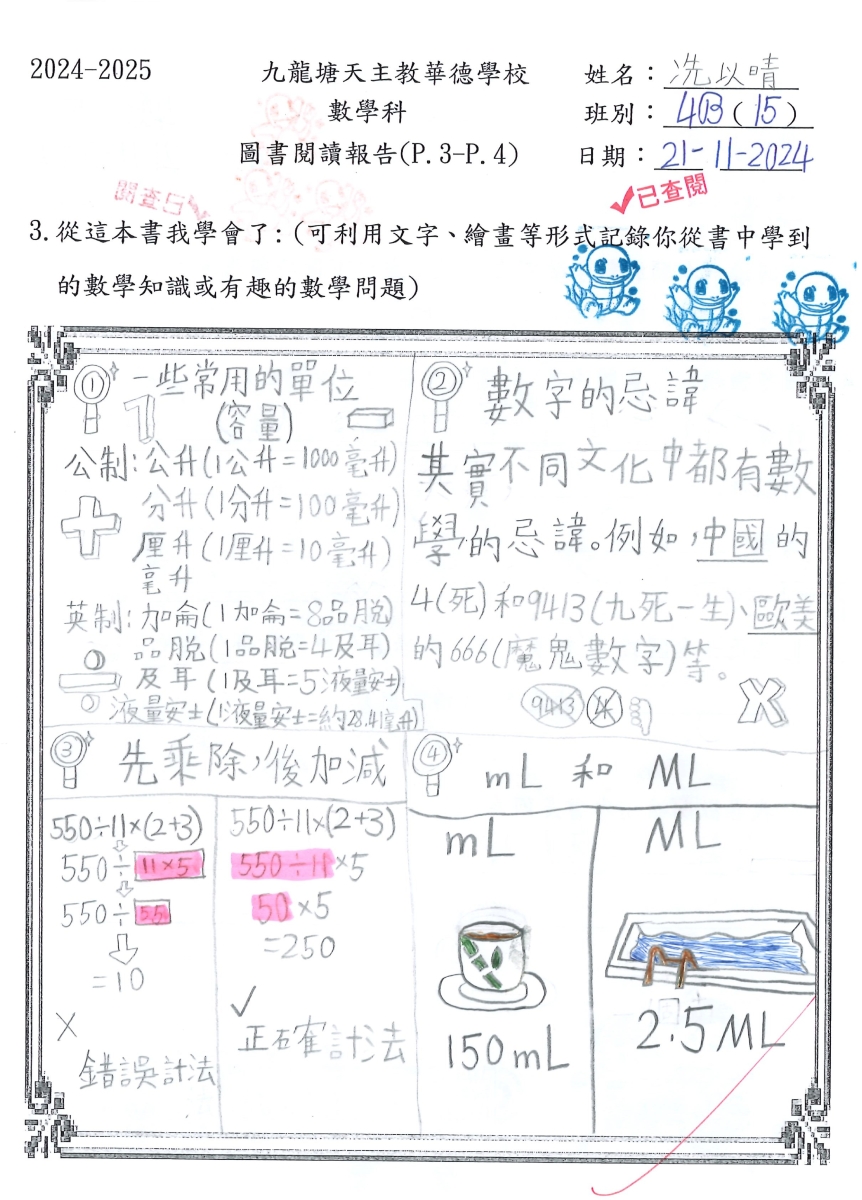 2024-2025
九龍塘天主教華德學校
數學科
圖書閱讀報告(P.3-P.4)
姓名：冼以晴
班別：4B(15)
日期：21-11-2024
已查閱
3.從這本書我學會了:(可利用文字、繪畫等形式記錄你從書中學到
的數學知識或有趣的數學問題)
① 一些常用的單位
(容量)
公制:公升(1公升=1000毫升)
分升(1分升=100毫升)
厘升(1厘升=10毫升)
毫升
英制:加侖(1加侖=8品脫)
品脫(1品脫=4及耳)
及耳(1及耳=5液量安士)
液量安士(1液量安士=約28.41毫升)
② 數字的忌諱
其實不同文化中都有數
學的忌諱。例如,中國的
4(死)和9413(九死一生)、歐美
的666(魔鬼數字)等。
9413 4
③ 先乘除,後加減
550÷11×(2+3)
550÷11×5
550÷55
=10
×
錯誤計法
550÷11×(2+3)
550÷11×5
50×5
=250
✓
正確計法
④ mL 和 ML
mL
150mL
ML
2.5ML